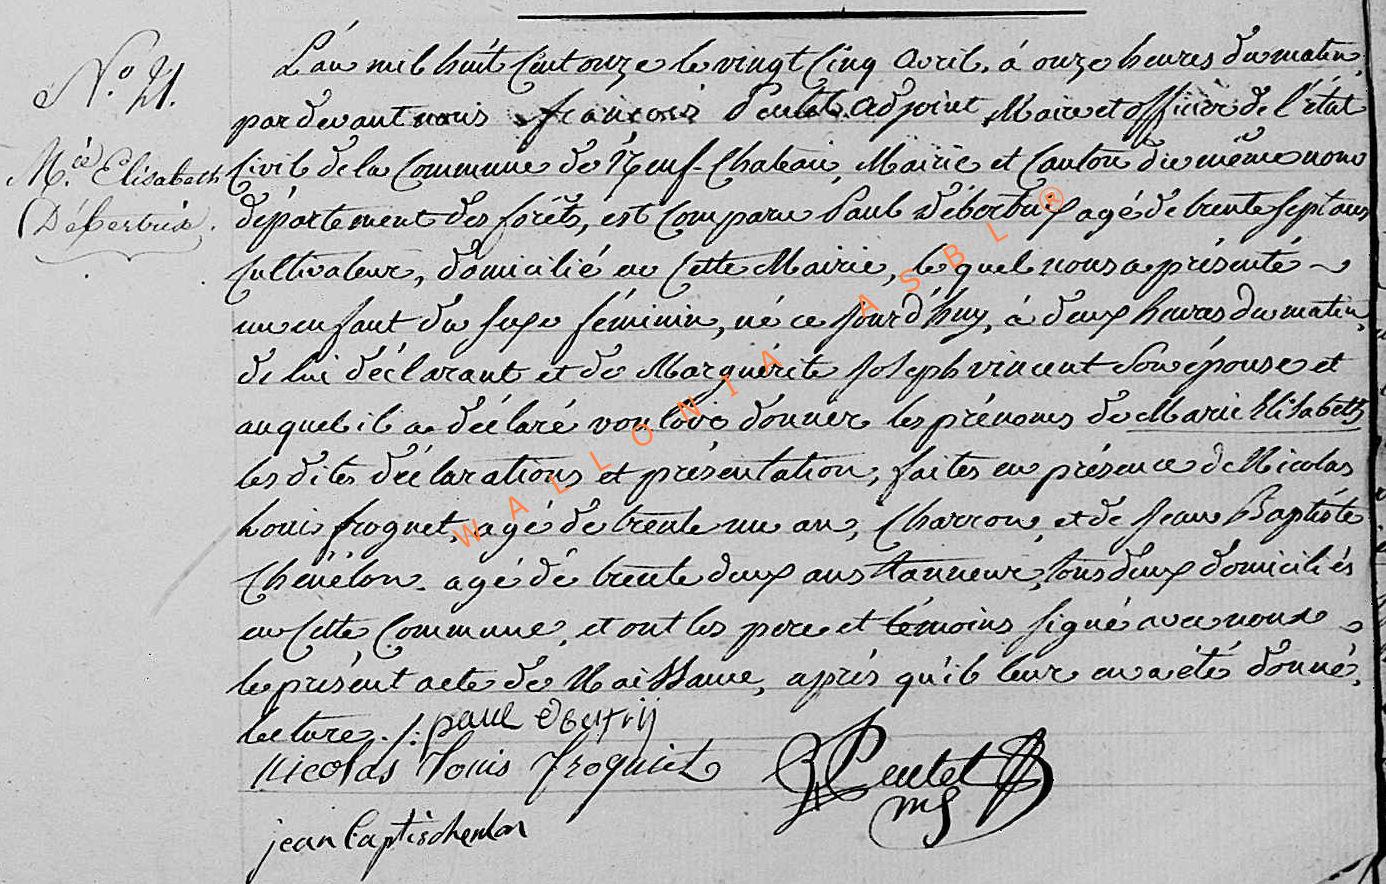 N.o 21.
M.ie Elisabeth
Débertrix.
L'an mil huit Cent onze le vingt Cinq Avril, à onze heures du matin,
pardevant nous françois Peulet Adjoint Maire et officier de l'état
Civil de la Commune de Neuf-Chateau, Mairie et Canton du même nom
département des forêts, est Comparu Paul Débertrix agé de trente sept ans
Cultivateur, domicilié en Cette Mairie, le quel nous a présenté ~
un enfant du sexe féminin, né ce jourd'huy, à deux heures du matin,
de lui déclarant et de Marguérite Joseph vincent son épouse et
auquel il a déclaré vouloir donner les prénoms de Marie Elisabeth
les dites déclarations et présentation, faites en présence de Nicolas
Louis froguet, agé de trente un an, Charron, et de Jean Baptiste
Chénélon agé de trente deux ans tanneur, tous deux domiciliés
en Cette Commune, et ont les pere et témoins signé avec nous
le présent acte de Naissance, après qu'il leur en a été donné,
lecture ./. paul
Nicolas Louis froguet
Peulet
jean baptis chenlon
WALLONIA ASBL ®